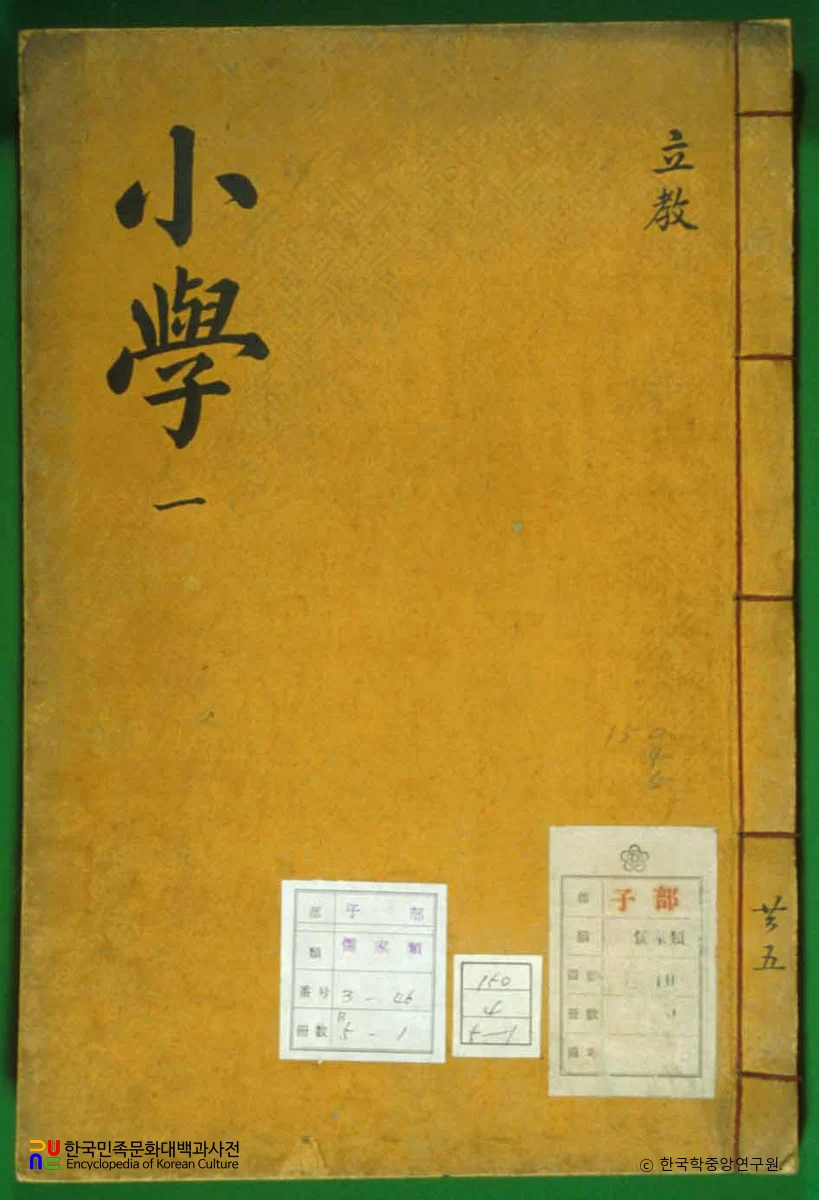 小學
一
立教
150
4
5
部 子部
類 儒家類
番号 3-46
冊数 5-1
150
4
5-1
部 子部
類 儒家類
五
한국민족문화대백과사전
Encyclopedia of Korean Culture
© 한국학중앙연구원